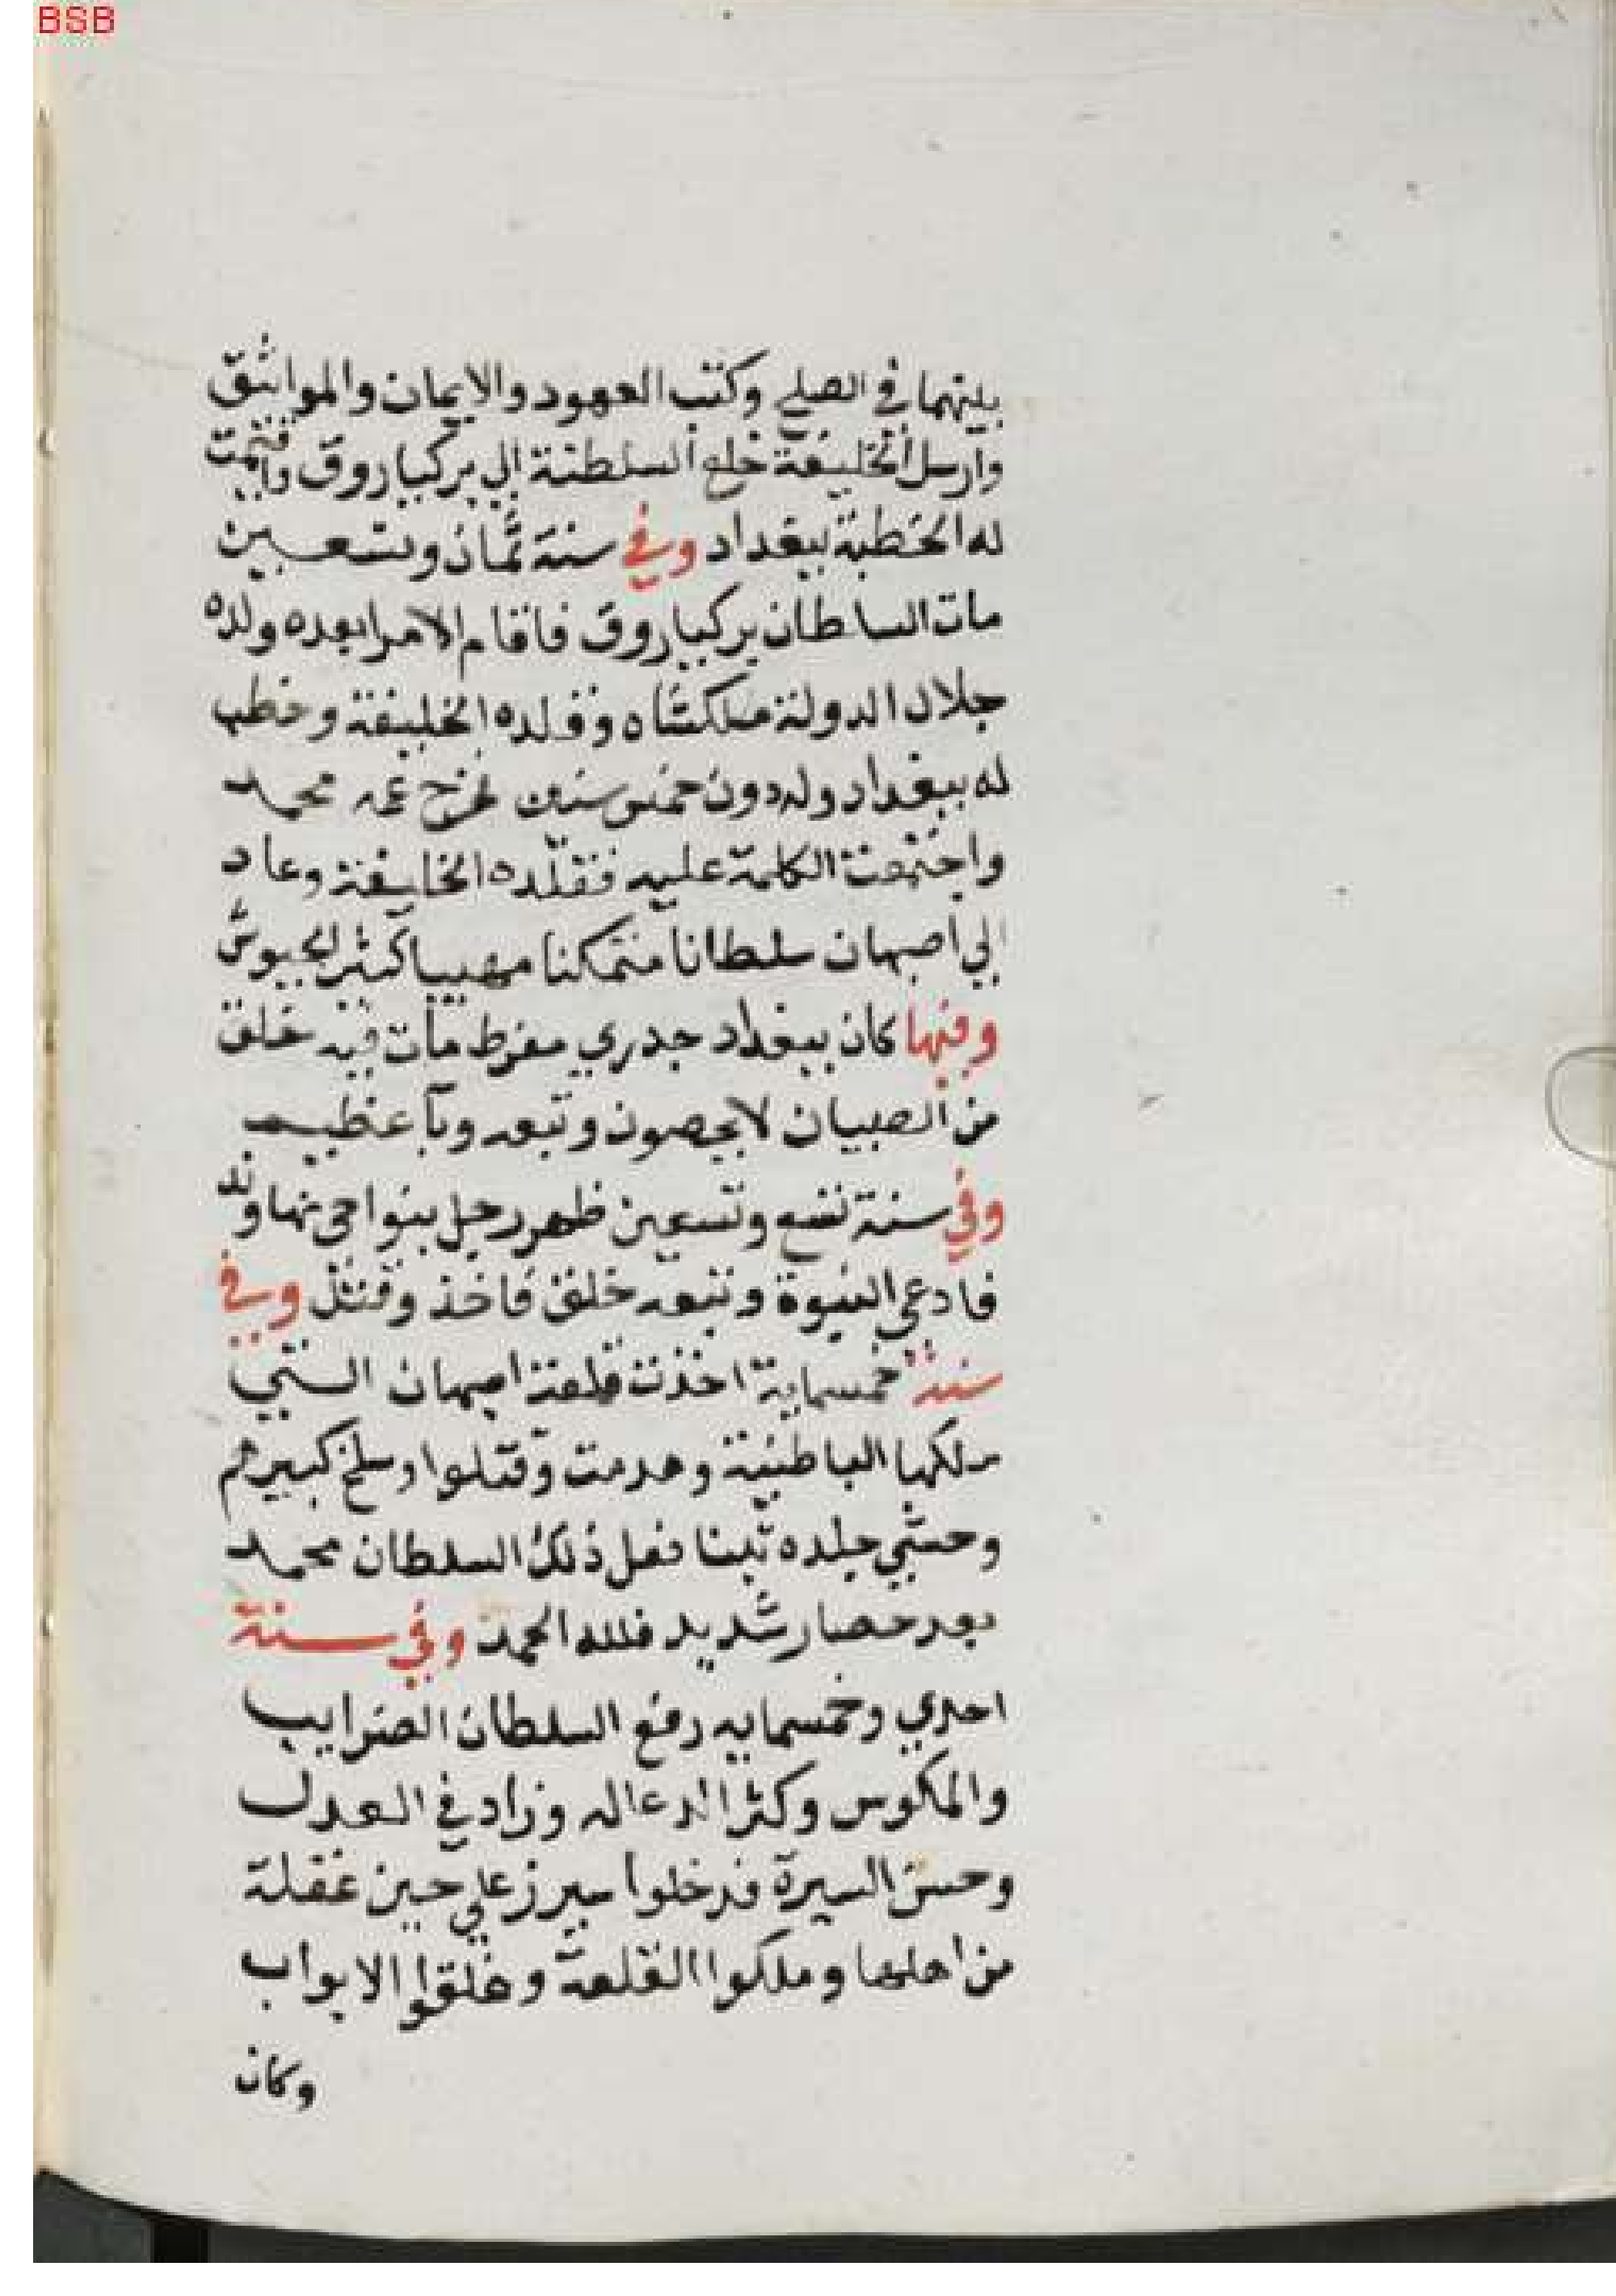 BSB
بينهما في الصلح وكتب العهود والايمان والمواثيق
وارسل الخليفة خلع السلطنة الي بركياروق واقيمت
له الخطبة ببغداد وفي سنة ثمان وتسعين
مات السلطان بركياروق فاقام الامرا بعده ولده
جلال الدولة ملكشاه وقلده الخليفة وخطب
له ببغداد وله دون خمس سنين فخرج عمه محمد
واجتمعت الكلمة عليه فقلده الخليفة وعاد
الي اصبهان سلطانا متمكنا مهيبا كثير الجيوش
وفيها كان ببغداد جدري مفرط مات فيه خلق
من الصبيان لا يحصون وتبعه وبآ عظيم
وفي سنة تسع وتسعين ظهر رجل بنواحي نهاوند
فادعي النبوة وتبعه خلق فاخذ وقتل وفي
سنة خمسماية اخذت قلعة اصبهان التي
ملكها الباطنية وهدمت وقتلوا وسلخ كبيرهم
وحشي جلده تبنا فعل ذلك السلطان محمد
بعد حصار شديد فلله الحمد وفي سنة
احدي وخمسمايه رفع السلطان الضرايب
والمكوس وكثر الدعا له وزاد في العدل
وحسن السيرة فدخلوا سيرز علي حين غفلة
من اهلها وملكوا القلعة وغلقوا الابواب
وكان